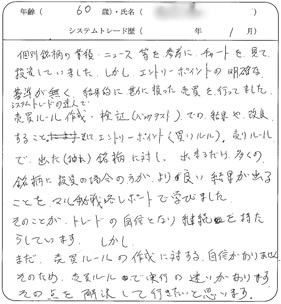 年齢( 60 歳)・氏名(
システムトレード歴( 年 1 月)
個別銘柄の業績・ニュース等を参考に、チャートを見て
投資していました。しかし、エントリーポイントの明確な
基準が無く、結果的に勘に頼った売買を行ってました。
システムトレードの達人で
売買ルール作成・検証(バックテスト)での結果や、改良
すること エントリーポイント(買いルール)、売りルール
で、出た 銘柄に対し、出来るだけ多くの
銘柄に投資の場合のほうが、より良い結果が出る
ことを 戦略レポートで学びました。
そのことが、トレードの自信となり継続 を持た
らしています。しかし、
まだ、売買ルールの作成に対する、自信がありません
そのため、売買ルール で実行の迷いがあります
その点を解決して行きたいと思います。